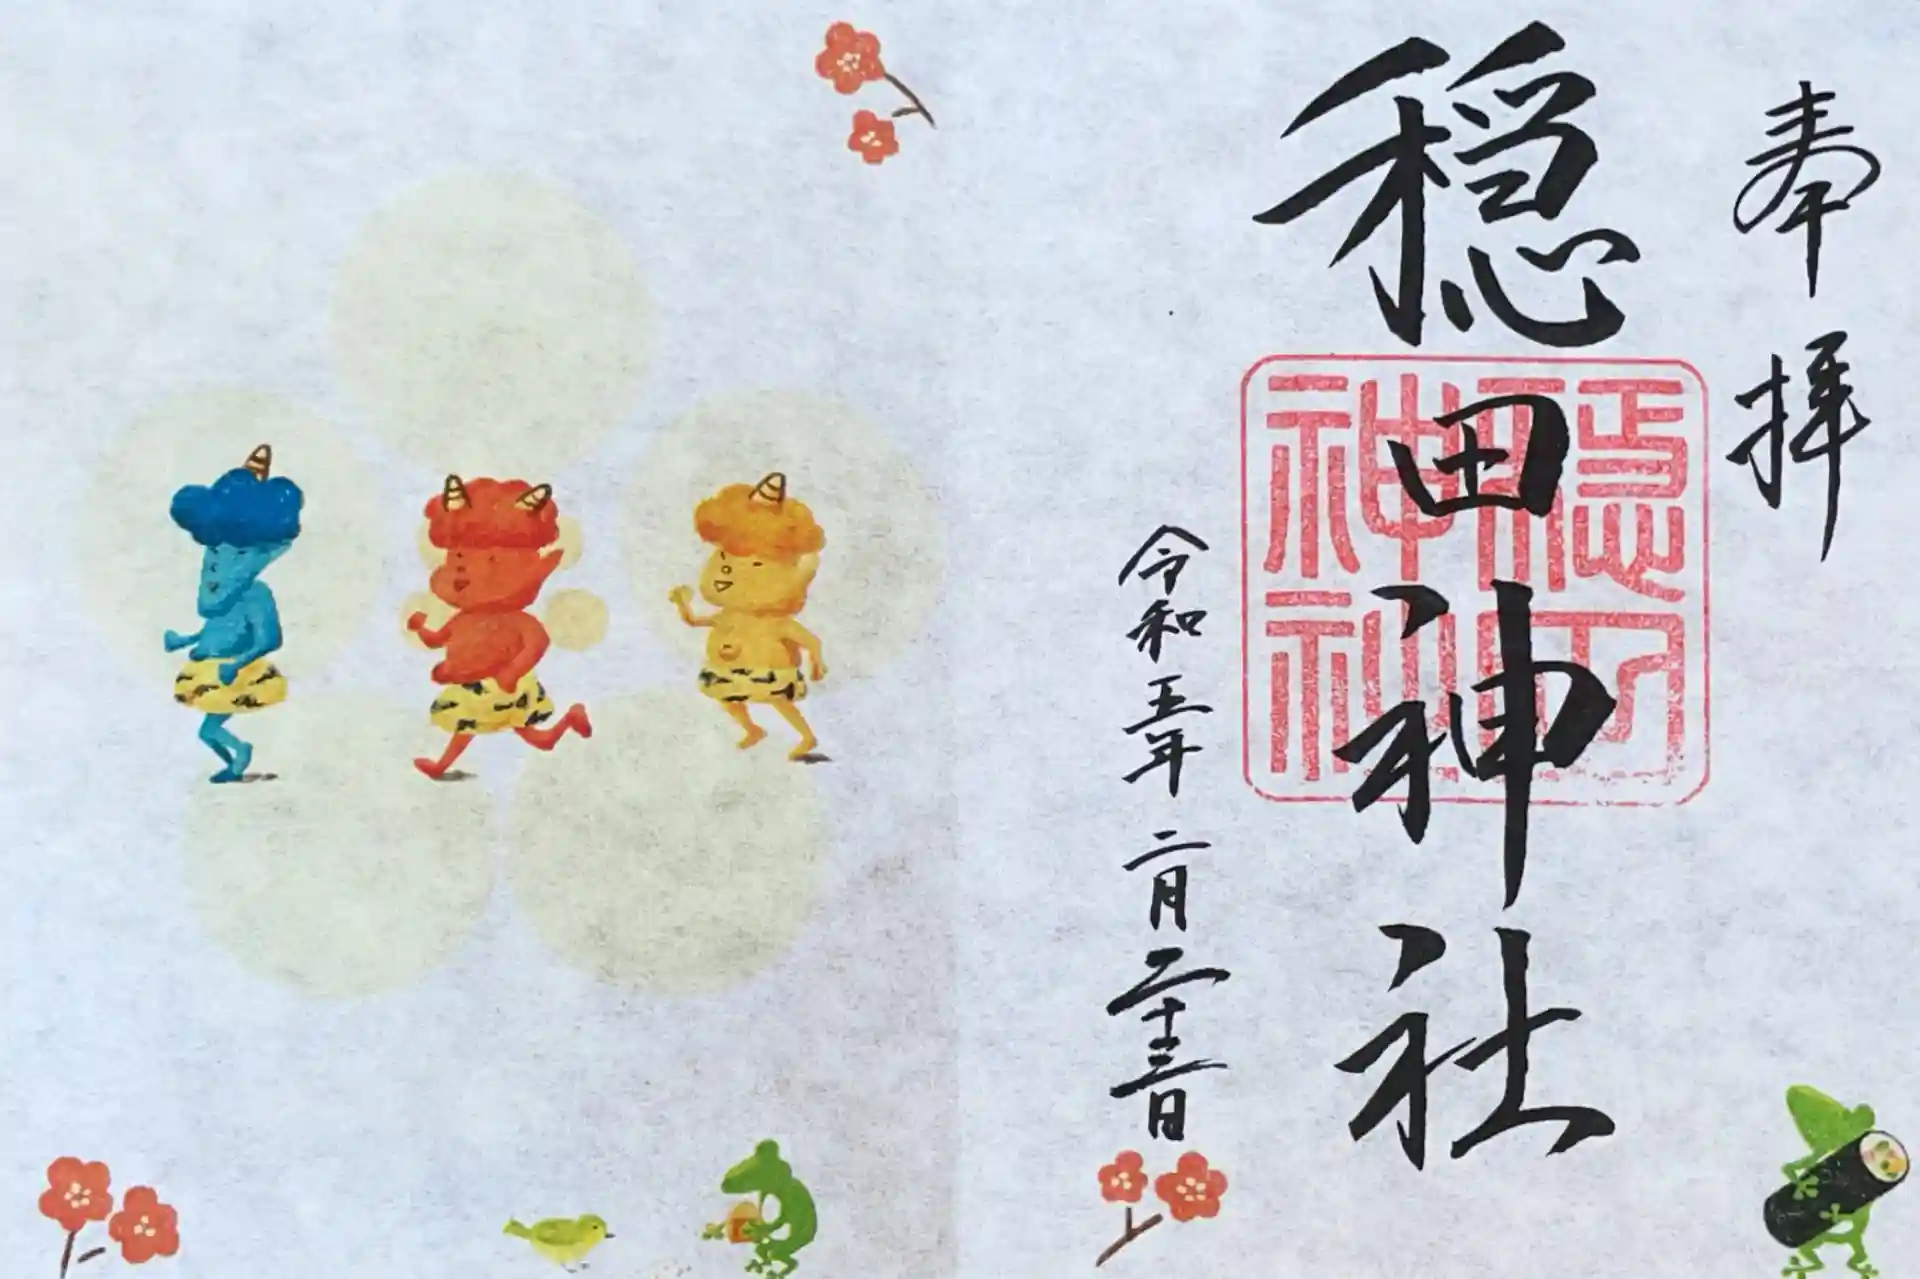 奉拝
穏田神社
令和五年二月二十三日